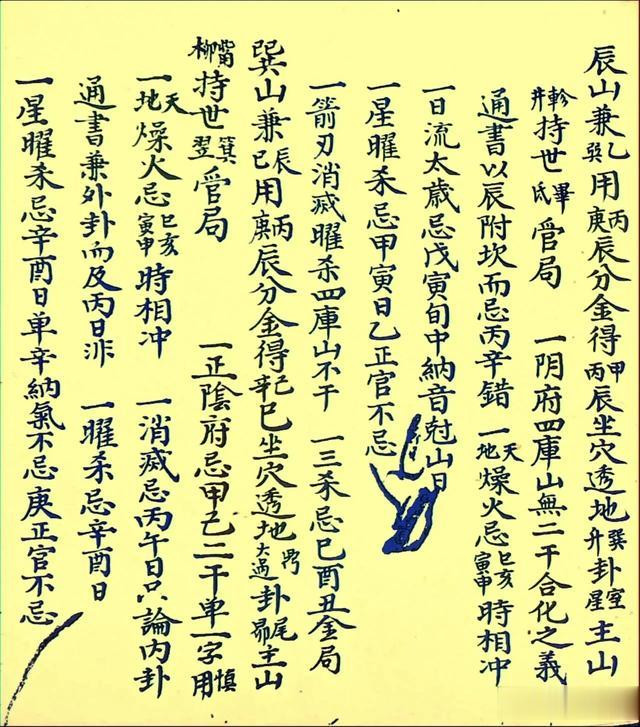 辰山兼乙巽用丙庚辰分金得甲丙辰坐穴透地巽升卦室星主山
軫井持世畢氐管局 一阴府四庫山無二干合化之義
通書以辰附坎而忌丙辛錯 一天地燥火忌巳亥寅申時相冲
一日流太歳忌戊寅旬中納音尅山日
一星曜杀忌甲寅日乙正官不忌
一箭刃消滅曜杀四庫山不干 一三杀忌巳酉丑金局
巽山兼辰巳用丙庚辰分金得己辛巳坐穴透地大過卦尾昴主山
觜柳持世箕翌管局 一正陰府忌甲己二干单一字慎用
一天地燥火忌巳亥寅申時相冲 一消滅忌丙午日只論内卦
通書兼外卦而及丙日非 一曜杀忌辛酉日
一星曜杀忌辛酉日单辛納氣不忌庚正官不忌